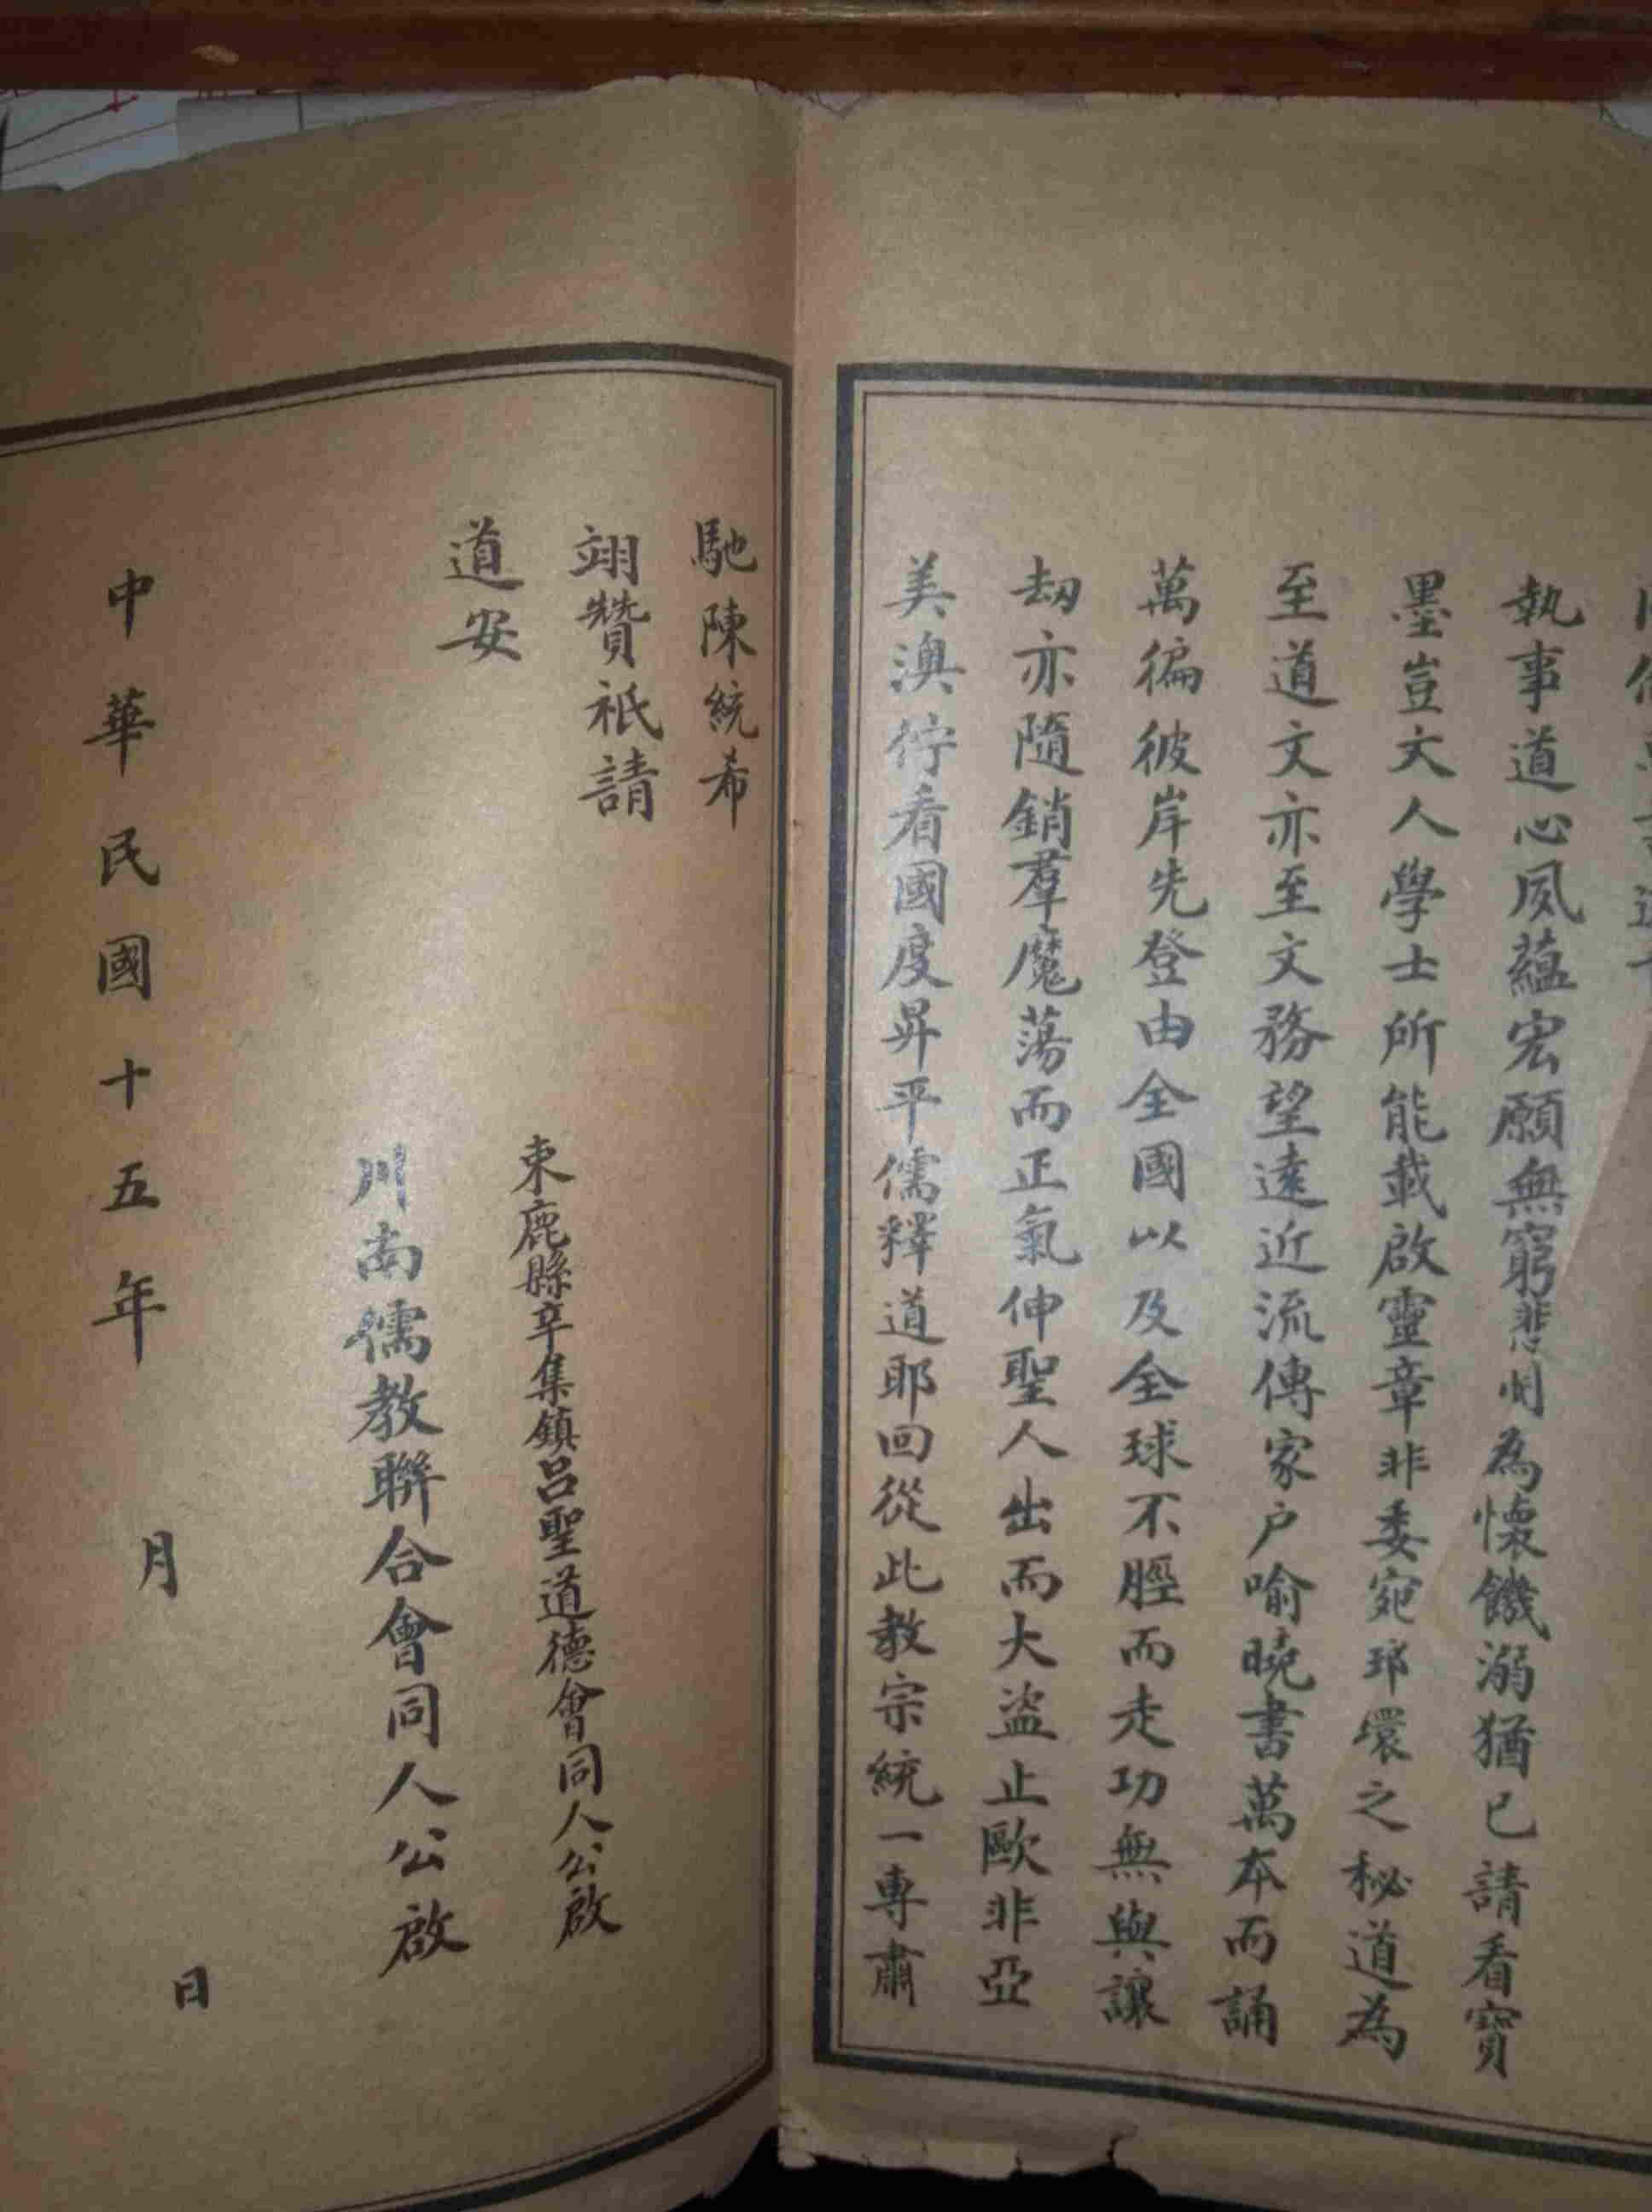 執事道心夙蘊宏願無窮悲悯為懷饑溺猶已請看寶
墨豈文人學士所能載啟靈章非委宛瑯環之秘道為
至道文亦至文務望遠近流傳家户喻曉書萬本而誦
萬徧彼岸先登由全國以及全球不脛而走功無與讓
劫亦隨銷羣魔蕩而正氣伸聖人出而大盜止歐非亞
美澳佇看國度昇平儒釋道耶回從此教宗統一專肅
馳陳統希
翊贊祇請
道安
束鹿縣辛集鎮呂聖道德會同人公啟
川南儒教聯合會同人公啟
中華民國十五年 月 日